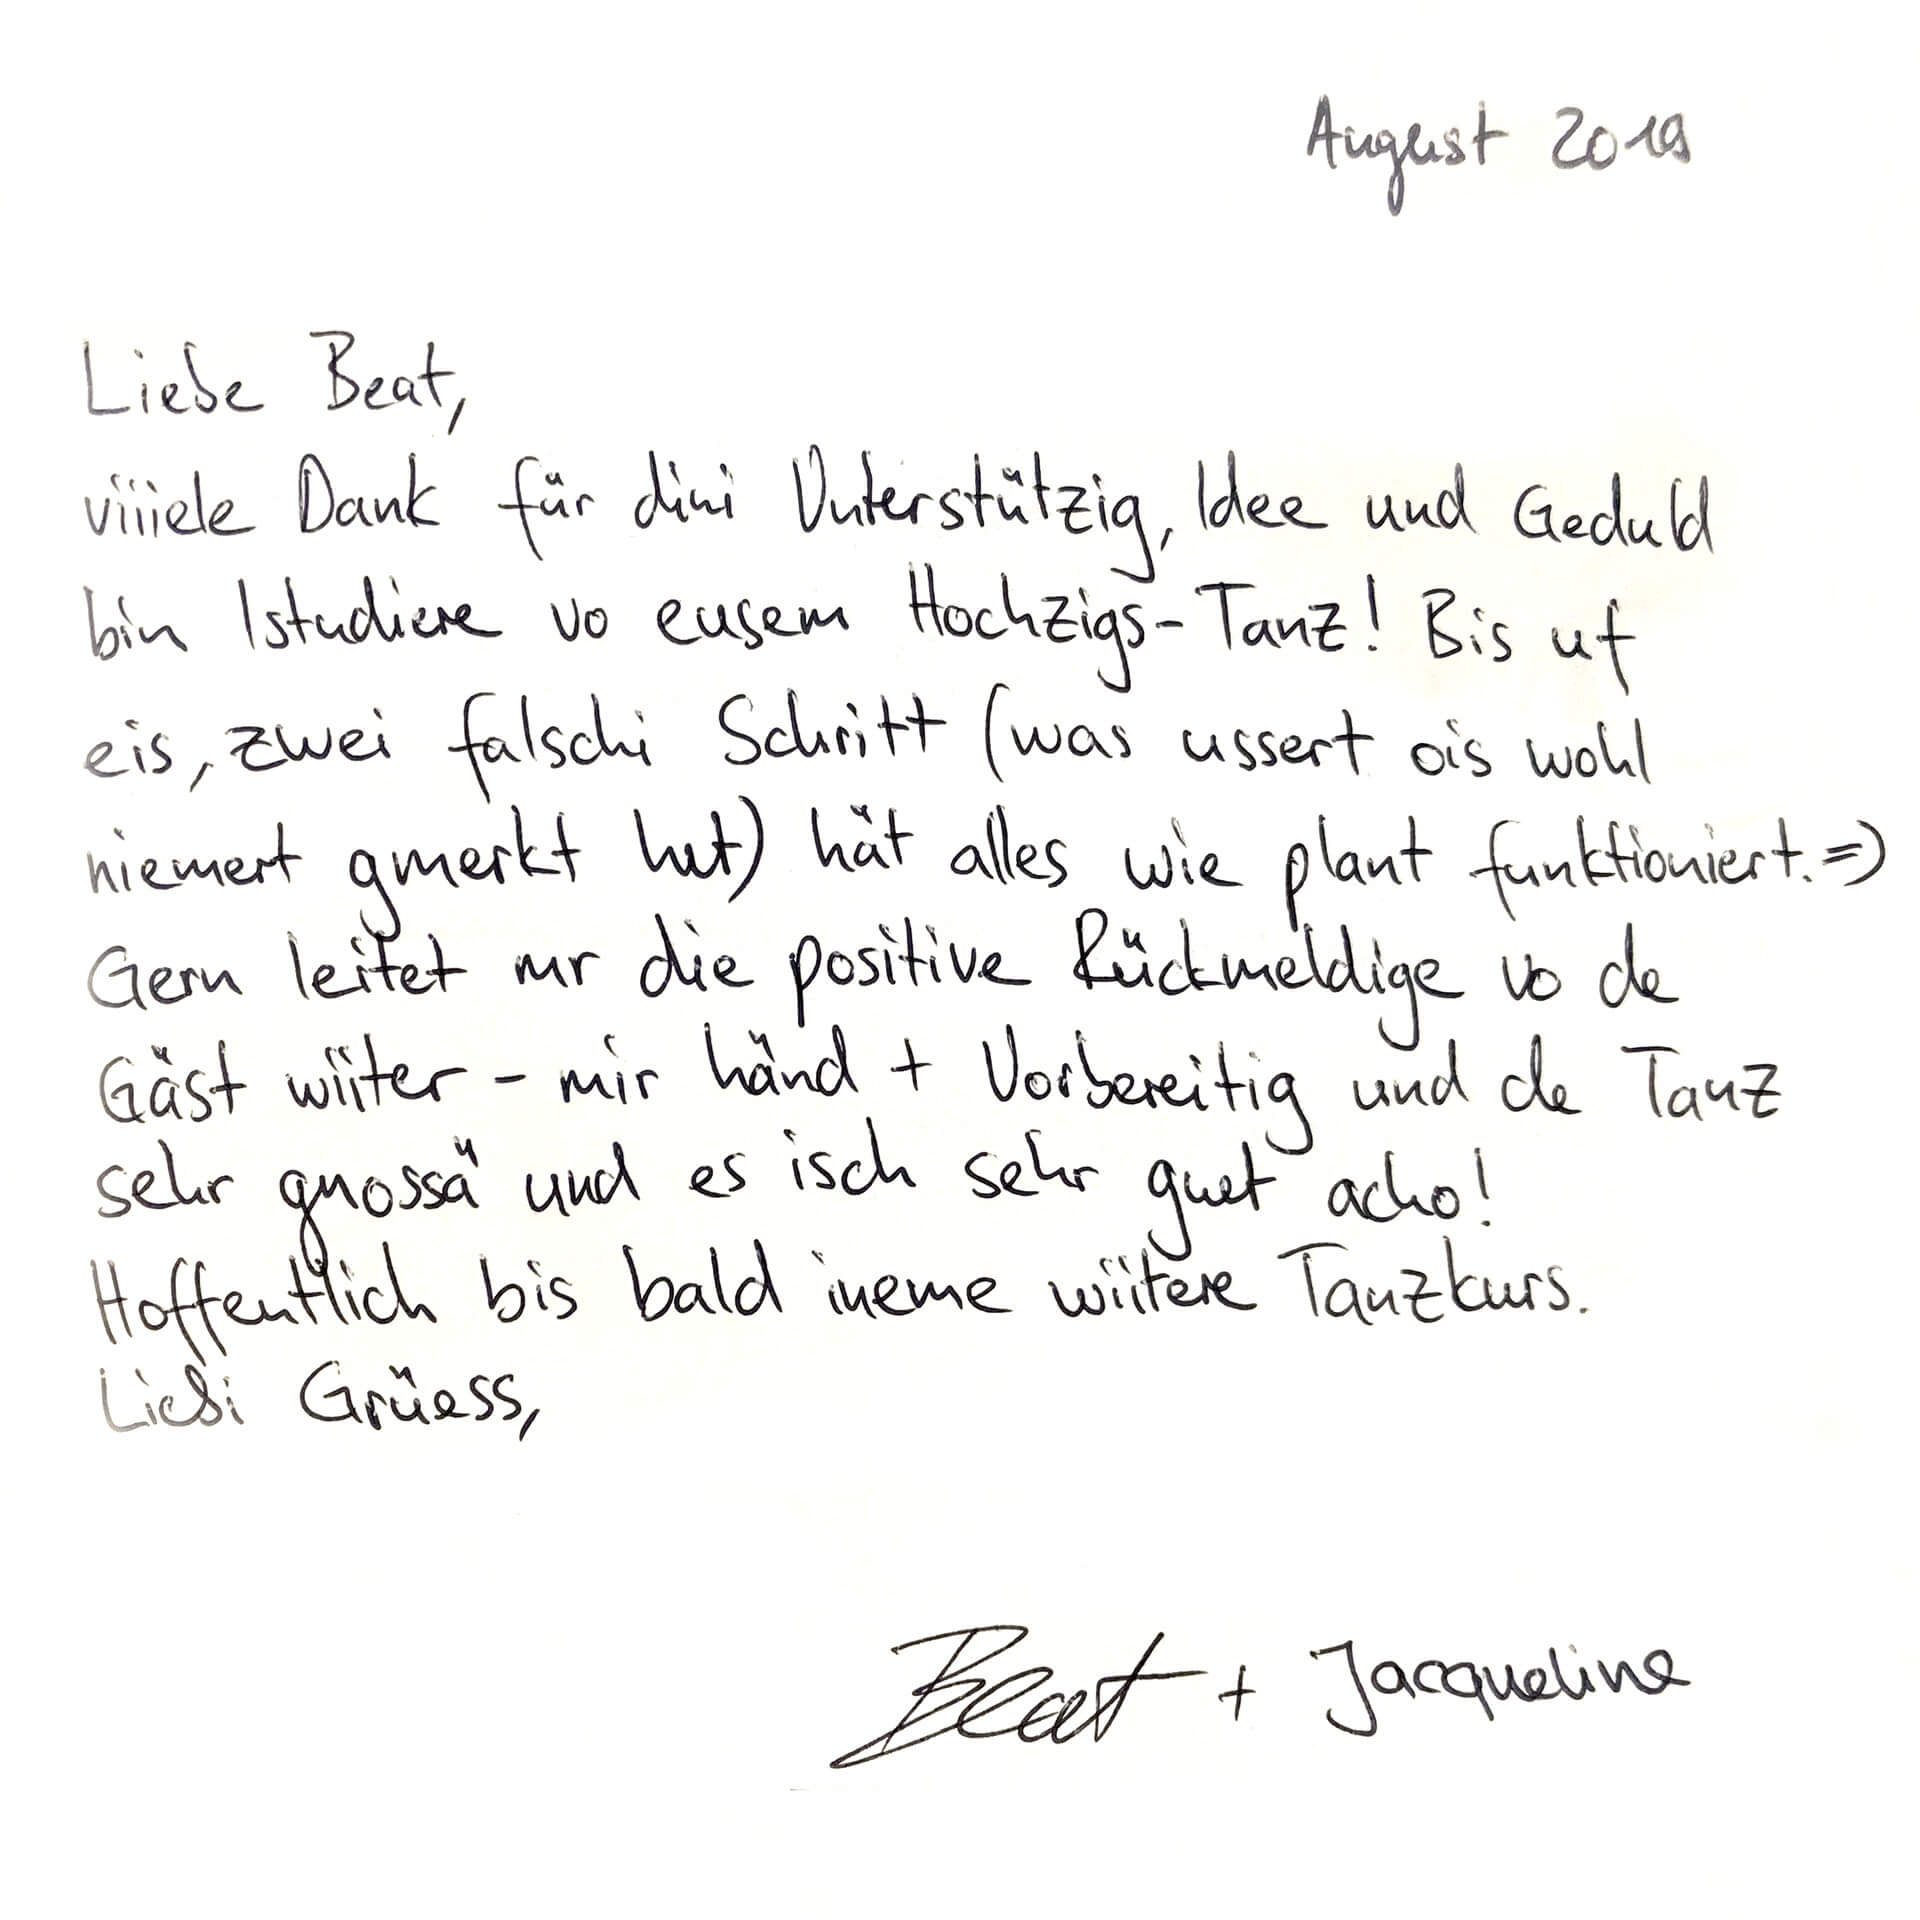 August 2019
Liebe Beat,
viiiele Dank für dini Unterstützig, Idee und Geduld
bin Istudiere vo eusem Hochzigs-Tanz! Bis uf
eis, zwei falschi Schritt (was ussert ois wohl
niemert gmerkt het) hät alles wie plant funktioniert. =)
Gern leitet mr die positive Rückmeldige vo de
Gäst wiiter - mir händ + Vorbereitig und de Tanz
sehr gnossä und es isch sehr guet acho!
Hoffentlich bis bald ineme wiitere Tanzkurs.
Liebi Grüess,
Beat + Jacqueline